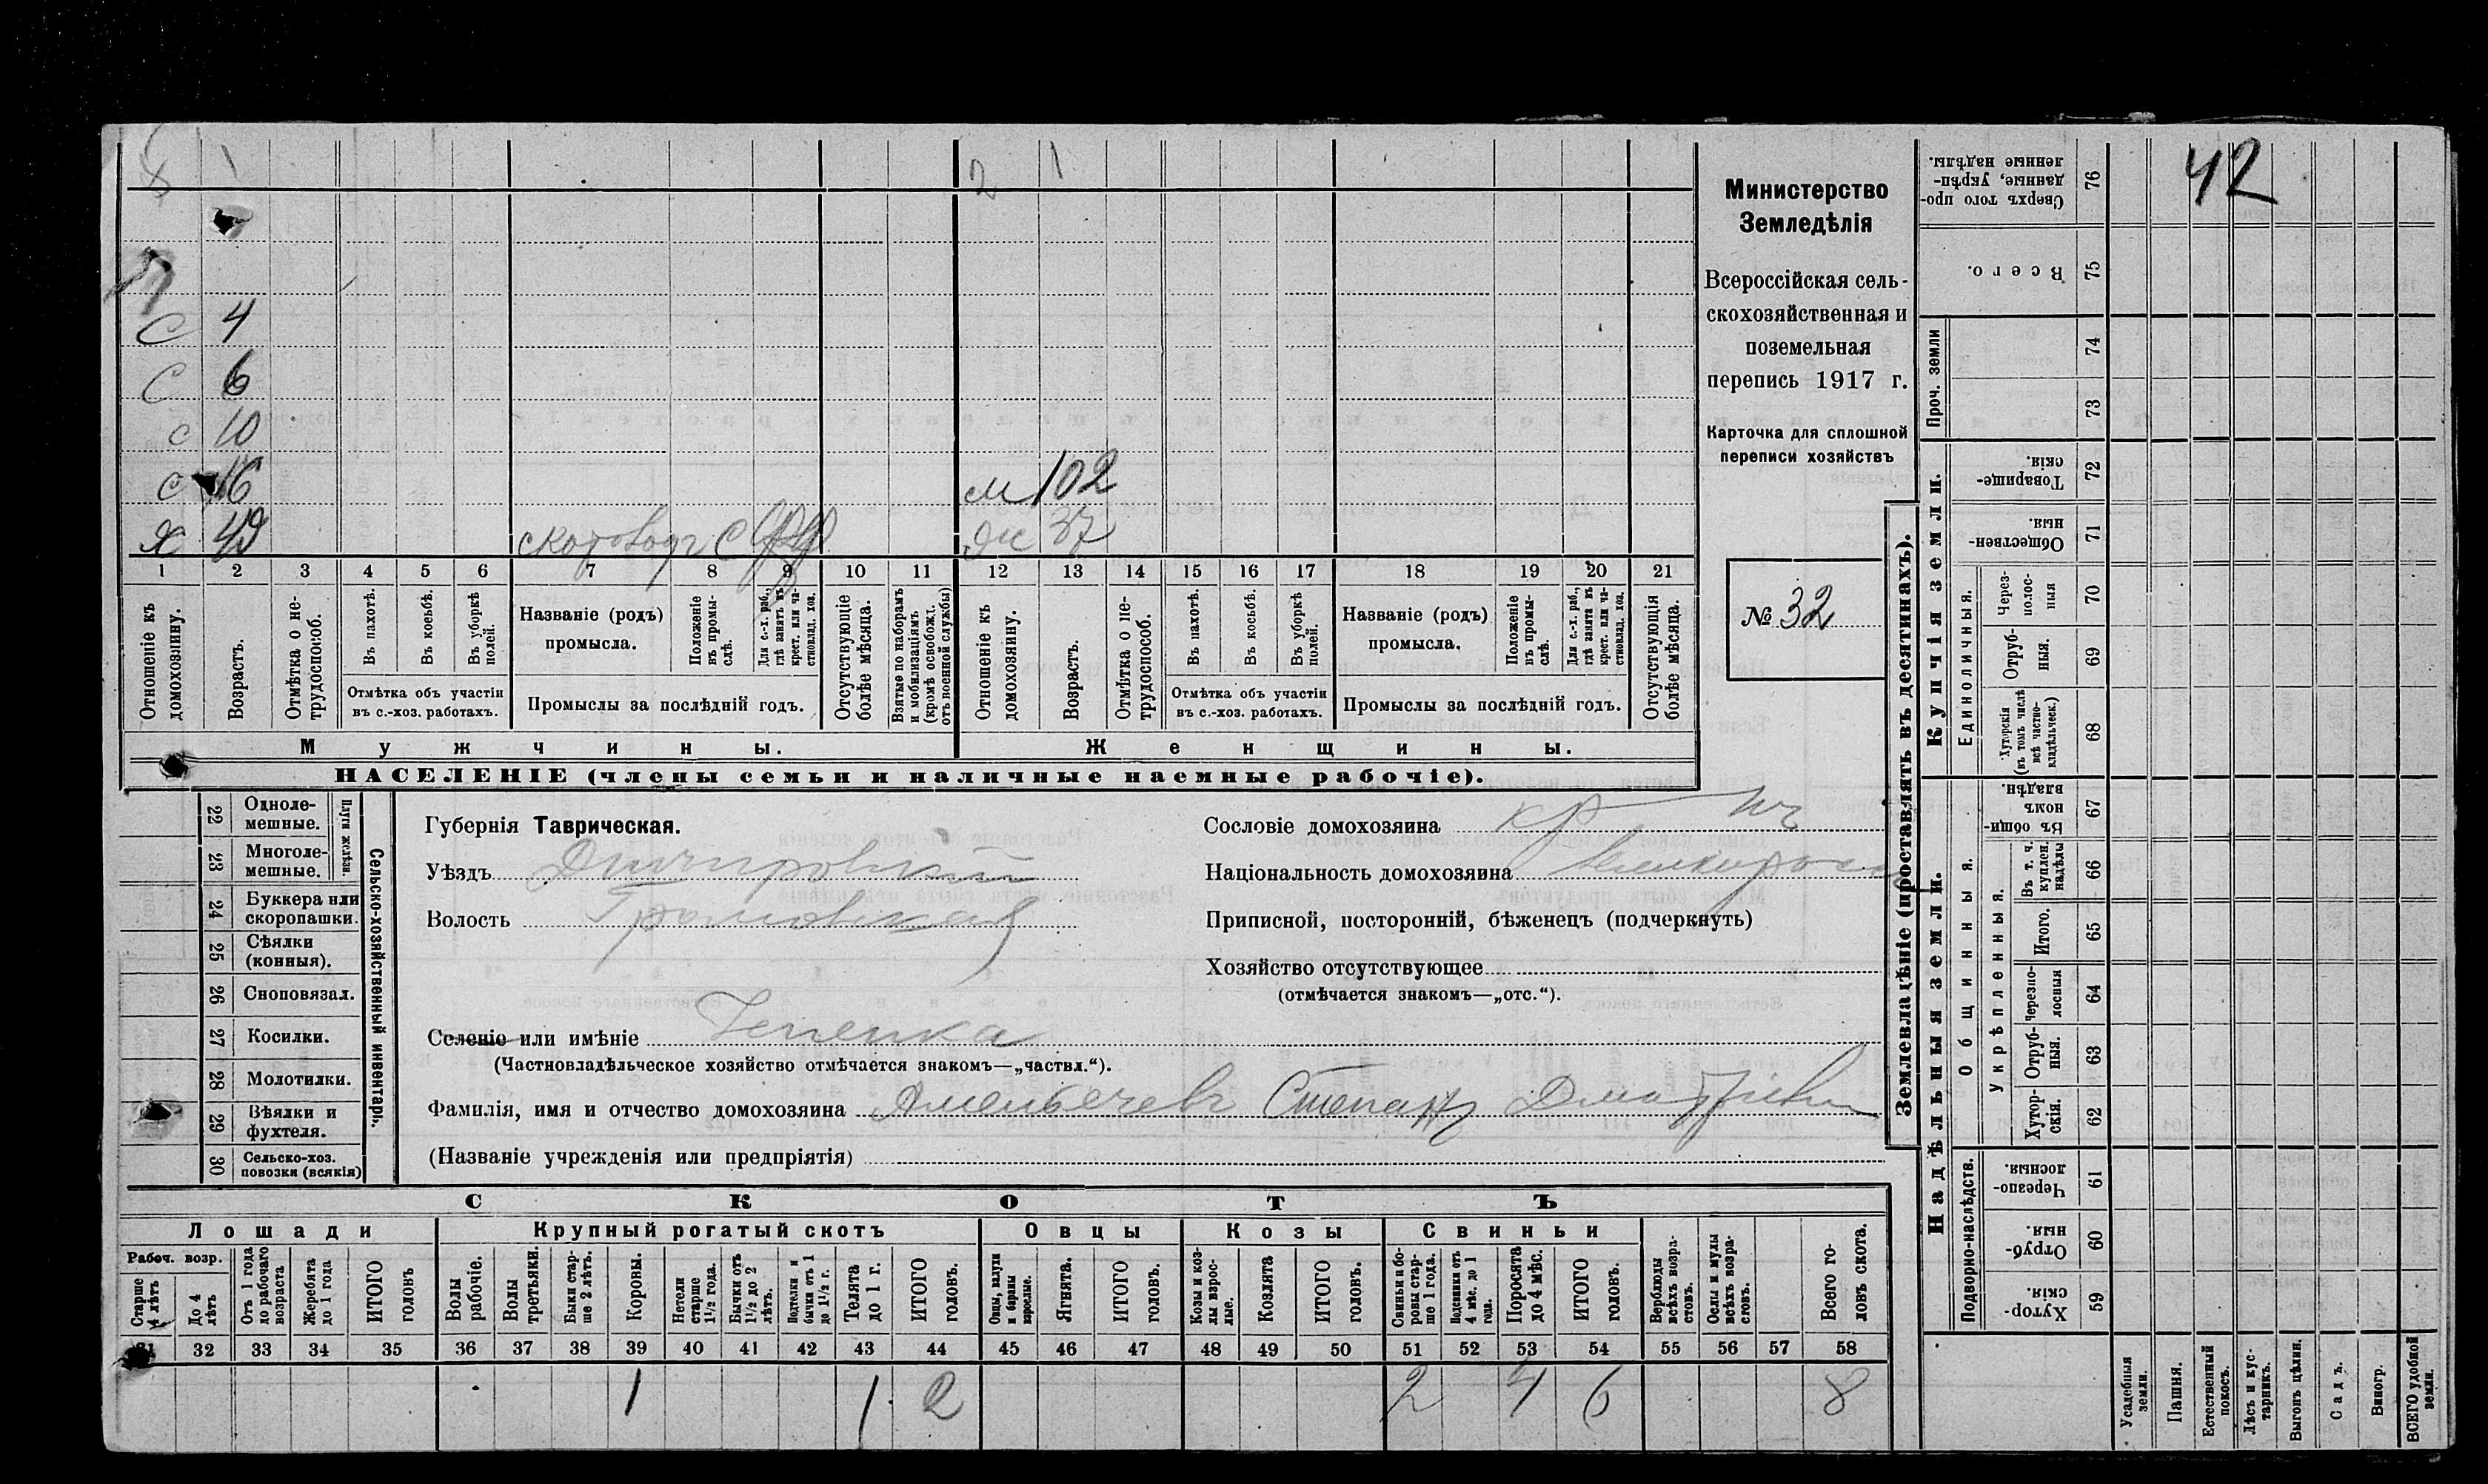 8 1 2 1
С 4
С 6
с 10
с 16 м 102
Х 49 скотоводъ С ж 37
1 2 3 4 5 6 7 8 9 10 11 12 13 14 15 16 17 18 19 20 21
Отношеніе къ домохозяину.
Возрастъ.
Отмѣтка о не-трудоспособ.
Въ пахотѣ.
Въ косьбѣ.
Въ уборкѣ полей.
Отмѣтка объ участіи
въ с.-хоз. работахъ.
Названіе (родъ)
промысла.
Положеніе въ промы-слѣ.
Для с.-х. раб., гдѣ занятъ въ крест. или ча-стновлад. хоз.
Промыслы за послѣдній годъ.
Отсутствующіе болѣе мѣсяца.
Взятые по наборамъ и мобилизаціямъ (кромѣ освобожд. отъ военной службы)
Отношеніе къ домохозяину.
Возрастъ.
Отмѣтка о не-трудоспособ.
Въ пахотѣ.
Въ косьбѣ.
Въ уборкѣ полей.
Отмѣтка объ участіи
въ с.-хоз. работахъ.
Названіе (родъ)
промысла.
Положеніе въ промы-слѣ.
Для с.-х. раб., гдѣ занята въ крест. или ча-стновлад. хоз.
Промыслы за послѣдній годъ.
Отсутствующія болѣе мѣсяца.
Мужчины. Женщины.
НАСЕЛЕНІЕ (члены семьи и наличные наемные рабочіе).
Министерство
Земледѣлія
Всероссійская сель-
скохозяйственная и
поземельная
перепись 1917 г.
Карточка для сплошной
переписи хозяйствъ
№ 32
22 Одноле-мешные.
23 Многоле-мешные.
Плуги желѣзн.
24 Буккера или скоропашки.
25 Сѣялки (конныя).
26 Сноповязал.
27 Косилки.
28 Молотилки.
29 Вѣялки и фухтеля.
30 Сельско-хоз. повозки (всякія)
Сельско-хозяйственный инвентарь.
Губернія Таврическая.
Уѣздъ Днѣпровскій
Волость Громовская
Селеніе или имѣніе
(Частновладѣльческое хозяйство отмѣчается знакомъ—„частвл.“).
Фамилія, имя и отчество домохозяина Степанъ Дмитріевичъ
(Названіе учрежденія или предпріятія)
Сословіе домохозяина кр-нъ
Національность домохозяина великоросс
Приписной, посторонній, бѣженецъ (подчеркнуть)
Хозяйство отсутствующее
(отмѣчается знакомъ—„отс.“).
СКОТЪ
Лошади Крупный рогатый скотъ Овцы Козы Свиньи
Рабоч. возр.
Старше 4 лѣтъ
До 4 лѣтъ
Отъ 1 года до рабочаго возраста
Жеребята до 1 года
ИТОГО головъ
Волы рабочіе.
Волы третьяки.
Быки стар-ше 2 лѣтъ.
Коровы.
Нетели старше 1½ года.
Бычки отъ 1½ до 2 лѣтъ.
Подтелки и бычки отъ 1 до 1½ г.
Телята до 1 г.
ИТОГО головъ.
Овцы, валухи и бараны взрослые.
Ягнята.
ИТОГО головъ.
Козы и коз-лы взрос-лые.
Козлята
ИТОГО головъ.
Свиньи и бо-ровы стар-ше 1 года.
Подсвинки отъ 4 мѣс. до 1 года.
Поросята до 4 мѣс.
ИТОГО головъ.
Верблюды всѣхъ возра-стовъ.
Ослы и мулы всѣхъ возра-стовъ.
Всего го-ловъ скота.
31 32 33 34 35 36 37 38 39 40 41 42 43 44 45 46 47 48 49 50 51 52 53 54 55 56 57 58
1 1 2 2 4 6 8
42
Землевладѣніе (проставлять въ десятинахъ).
Купчія земли.
Надѣльныя земли.
Проч. земли
Единоличныя.
Общинныя.
Укрѣпленныя.
Подворно-наслѣдств.
76 Сверхъ того про-данные, укрѣп-ленные надѣлы.
75 Всего.
74
73
72 Товарище-скія.
71 Обществен-ныя.
70 Через-полос-ныя
69 Отруб-ныя.
68 Хуторскія (въ томъ числѣ всѣ частно-владѣльческ.)
67 Въ общин-номъ владѣн.
66 Въ т. ч. куплен. надѣлы
65 Итого.
64 Черезпо-лосныя
63 Отруб-ныя.
62 Хутор-скія.
61 Черезпо-лосныя
60 Отруб-ныя.
59 Хутор-скія.
Усадебныя земли.
Пашня.
Естественный покосъ.
Лѣсъ и кус-тарникъ.
Выгонъ цѣлин.
Садъ.
Виногр.
ВСЕГО удобной земли.